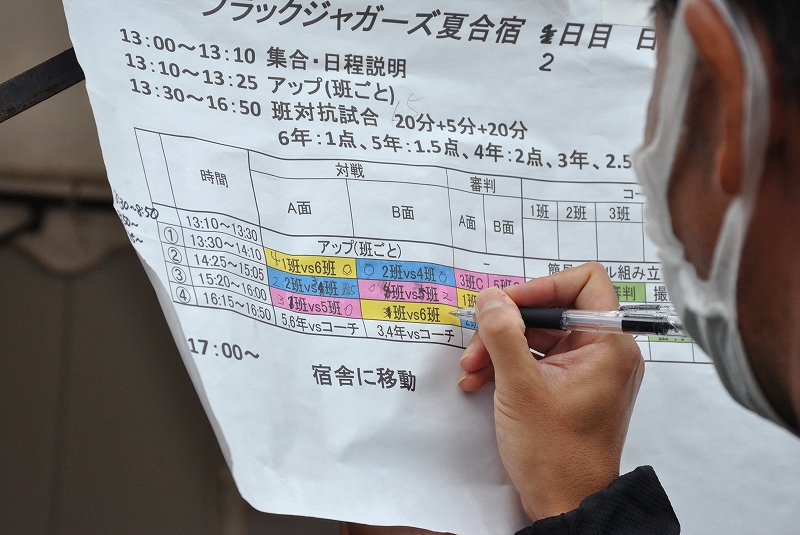 ブラックジャガーズ夏合宿 日目 日
2
13:00～13:10 集合・日程説明
13:10～13:25 アップ(班ごと)
13:30～16:50 班対抗試合 20分+5分+20分
6年:1点、5年:1.5点、4年:2点、3年、2.5
時間 対戦 審判 コー
A面 B面 A面 B面 1班 2班 3班
13:10～13:30 アップ(班ごと) －
① 13:30～14:10 1班vs6班 2班vs4班 3班C 5班C
② 14:25～15:05 2班vs4班 班vs5班 審判 撮
③ 15:20～16:00 班vs5班 班vs6班
④ 16:15～16:50 5,6年vsコーチ 3,4年vsコーチ
17:00～ 宿舎に移動